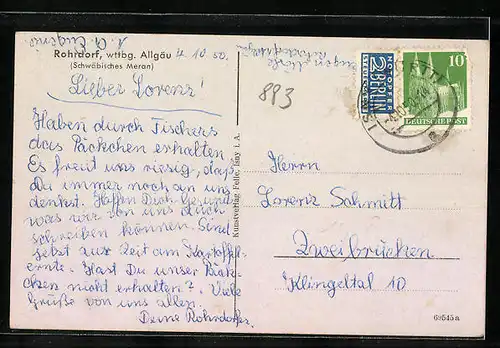 Rohrdorf, wttbg. Allgäu
4.10.50.
(Schwäbisches Meran)
Lieber Lorenz!
Haben durch Fischers
das Päckchen erhalten
Es freut uns riesig, daß
Du immer noch an uns
denkst. Hoffen Dich bei uns
schreiben können. Sind
jetzt zur Zeit am Kartoffel-
ernte. Hast Du unser Päck-
chen nicht erhalten? Viele
Grüße von uns allen.
Deine Rohrdorfer.
Kunstverlag Felle, Isny i. A.
893
NOTOPFER
2 BERLIN
STEUERMARKE
10
DEUTSCHE POST
ISNY
Herrn
Lorenz Schmitt
Zweibrücken
Klingeltal 10
69545a